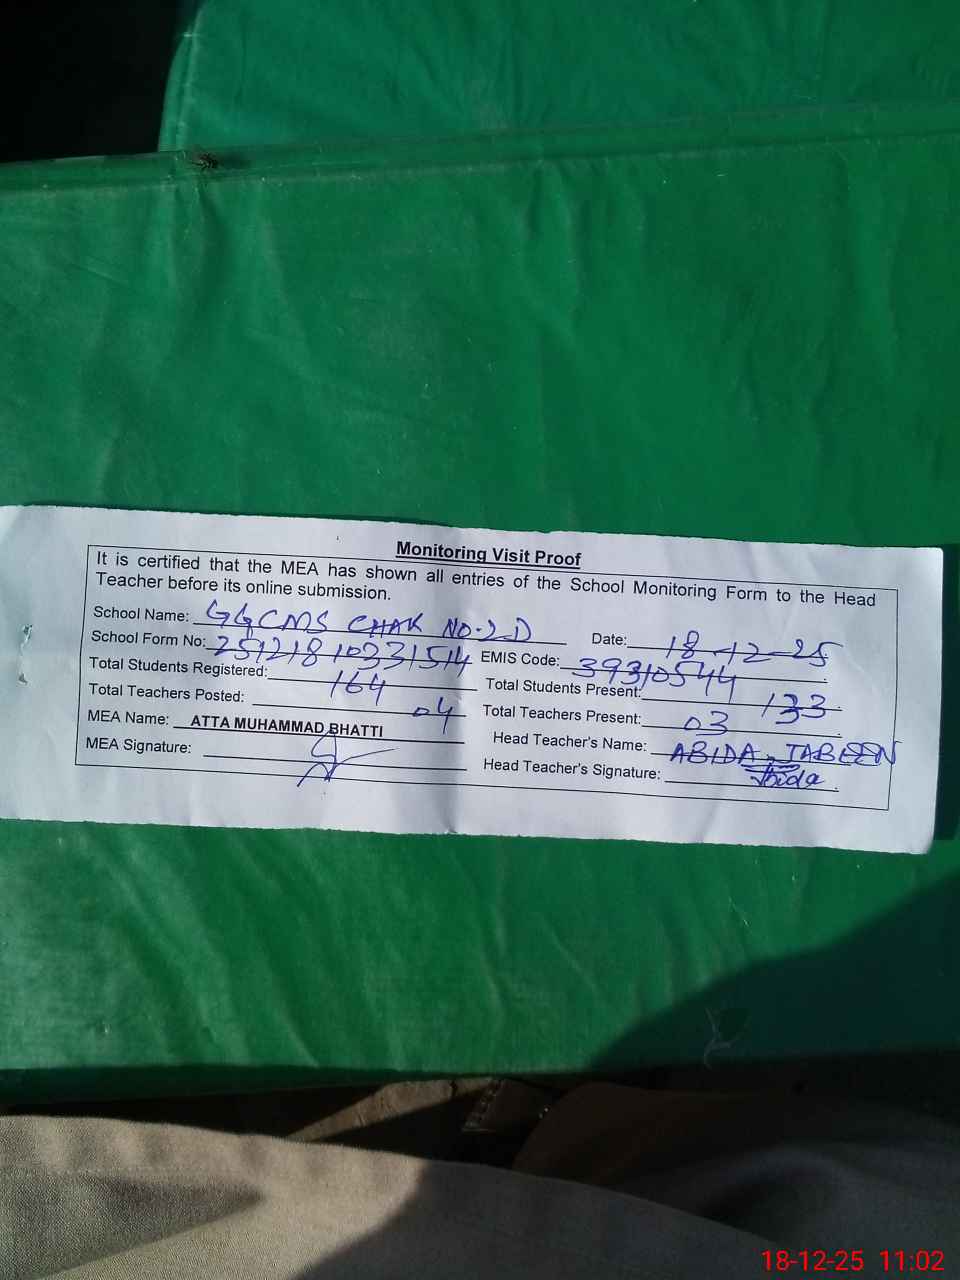 Monitoring Visit Proof
It is certified that the MEA has shown all entries of the School Monitoring Form to the Head
Teacher before its online submission.
School Name: GGCMS CHAK NO.2D Date: 18-12-25
School Form No: 25121810331514 EMIS Code: 39310544
Total Students Registered: 164 Total Students Present: 133
Total Teachers Posted: 04 Total Teachers Present: 03
MEA Name: ATTA MUHAMMAD BHATTI Head Teacher's Name: ABIDA JABEEN
MEA Signature: Head Teacher's Signature: Abida
18-12-25 11:02